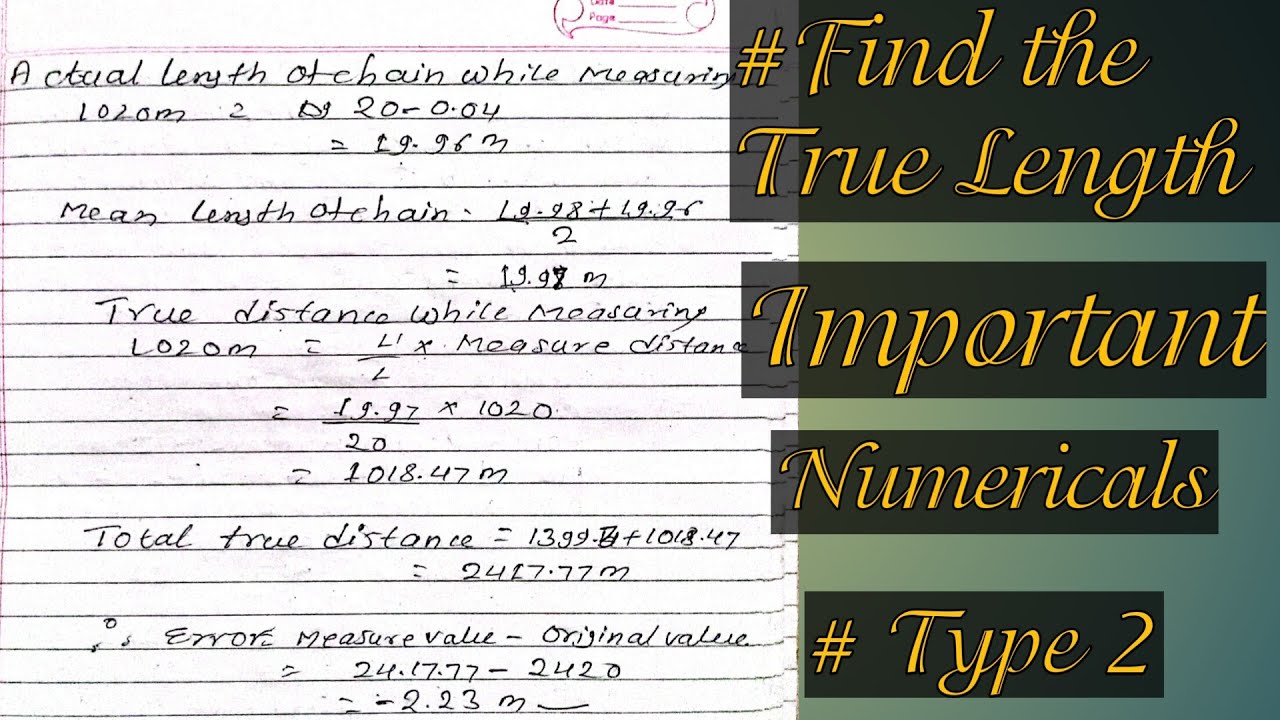 Date
Page
Actual length of chain while Measuring
1020m = 20-0.04
= 19.96 m
Mean length of chain = 19.98+19.96
2
= 19.97 m
True distance while Measuring
1020m = L' × Measure distance
L
= 19.97 × 1020
20
= 1018.47 m
Total true distance = 1399. +1018.47
= 2417.77m
∴ Error = Measure value - Original value
= 24.17.77 - 2420
= -2.23 m
# Find the
True Length
Important
Numericals
# Type 2